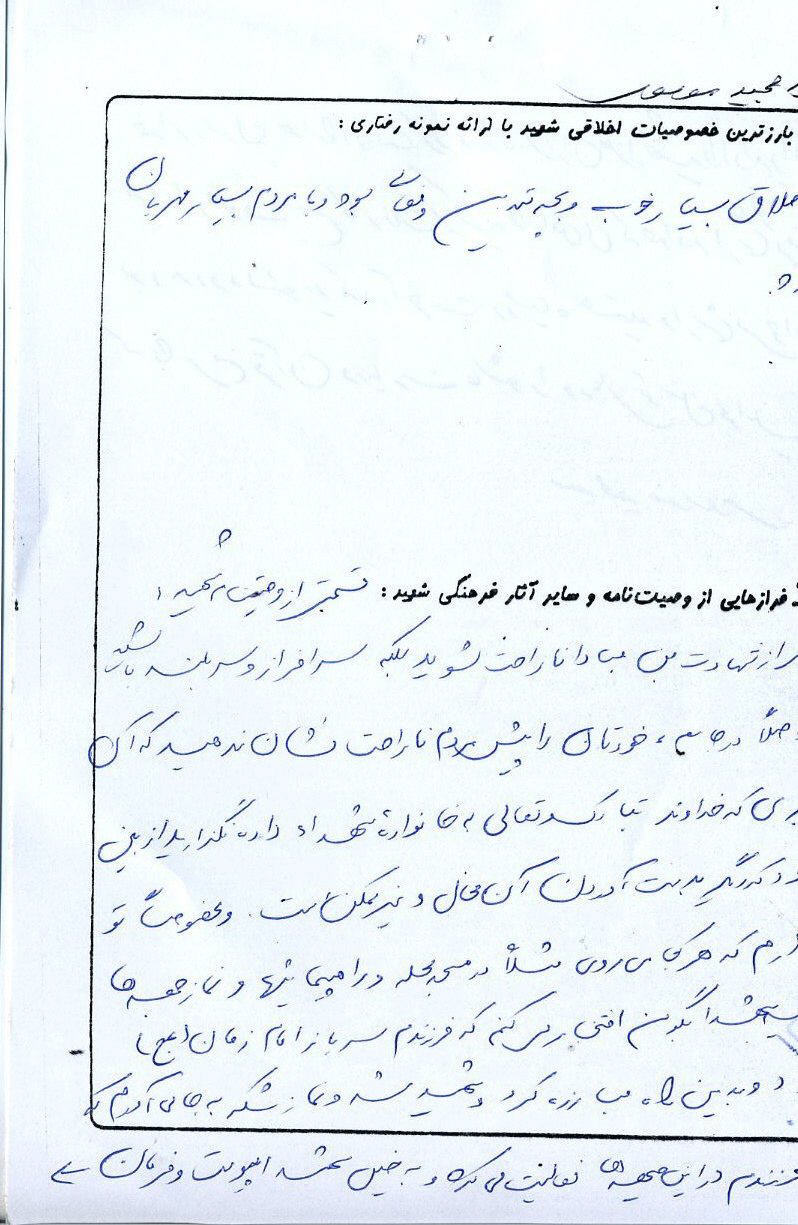 مجید موسوی
بارزترین خصوصیات اخلاقی شهید با ارائه نمونه رفتاری :
اخلاق بسیار خوب و بچه متدین و فعالی بود و با مردم بسیار مهربان
فرازهایی از وصیت‌نامه و سایر آثار فرهنگی شهید : قسمتی از وصیت شهید :
از شهادت من مبادا ناراحت شوید بلکه سرافراز و سربلند باشید
اصلاً در جامعه ، خودتان را پیش مردم ناراحت نشان ندهید که آن
که خداوند تبارک و تعالی به خانواده شهداء داده نگذارید از بین
که دیگر بدست آوردن آن محال و غیر ممکن است . و مخصوصاً تو
که هر کجا می روی مثلاً در مسجد محله و راهپیمائیها و نماز جمعه ها
بگو من افتخار می کنم که فرزندم سرباز امام زمان (عج)
و در این راه مبارزه کرد و شهید شد و نماز شکر به جای آوردم که
فرزندم در این جبهه ها فعالیت می کرد و به خیل شهداء پیوست و فرمان